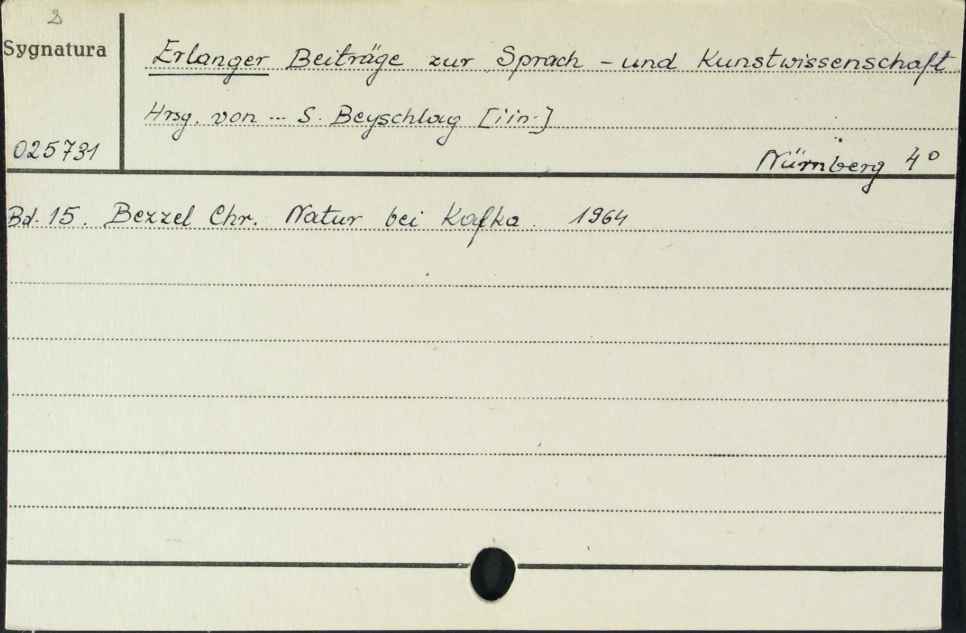 Sygnatura
Erlanger Beiträge zur Sprach - und Kunstwissenschaft
Hrsg. von ... S. Beyschlag [i in.]
025731
Nürnberg 4°
Bd. 15. Bezzel Chr. Natur bei Kafka. 1964